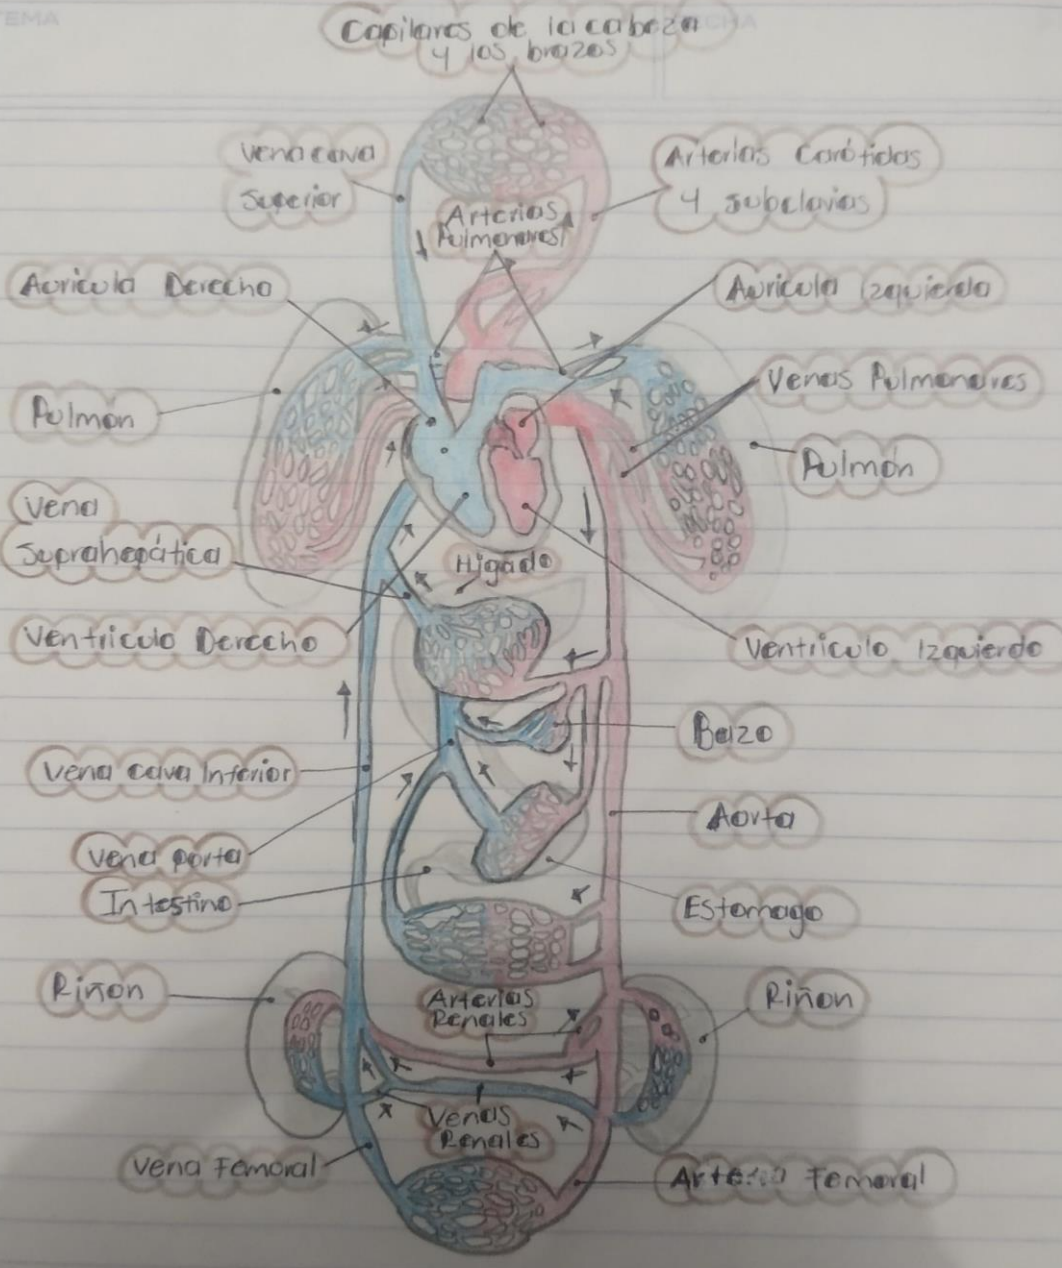 TEMA
FECHA
Capilares de la cabeza
y los brazos
Vena cava
Superior
Arterias Carótidas
y subclavias
Arterias
Pulmonares
Auricula Derecho
Auricula Izquierdo
Venas Pulmonares
Pulmón
Pulmón
Vena
Suprahepática
Higado
Ventriculo Derecho
Ventriculo Izquierdo
Bazo
Vena cava Inferior
Aorta
Vena porta
Intestino
Estomago
Riñon
Arterias
Renales
Riñon
Venas
Renales
Vena Femoral
Arteria Femoral